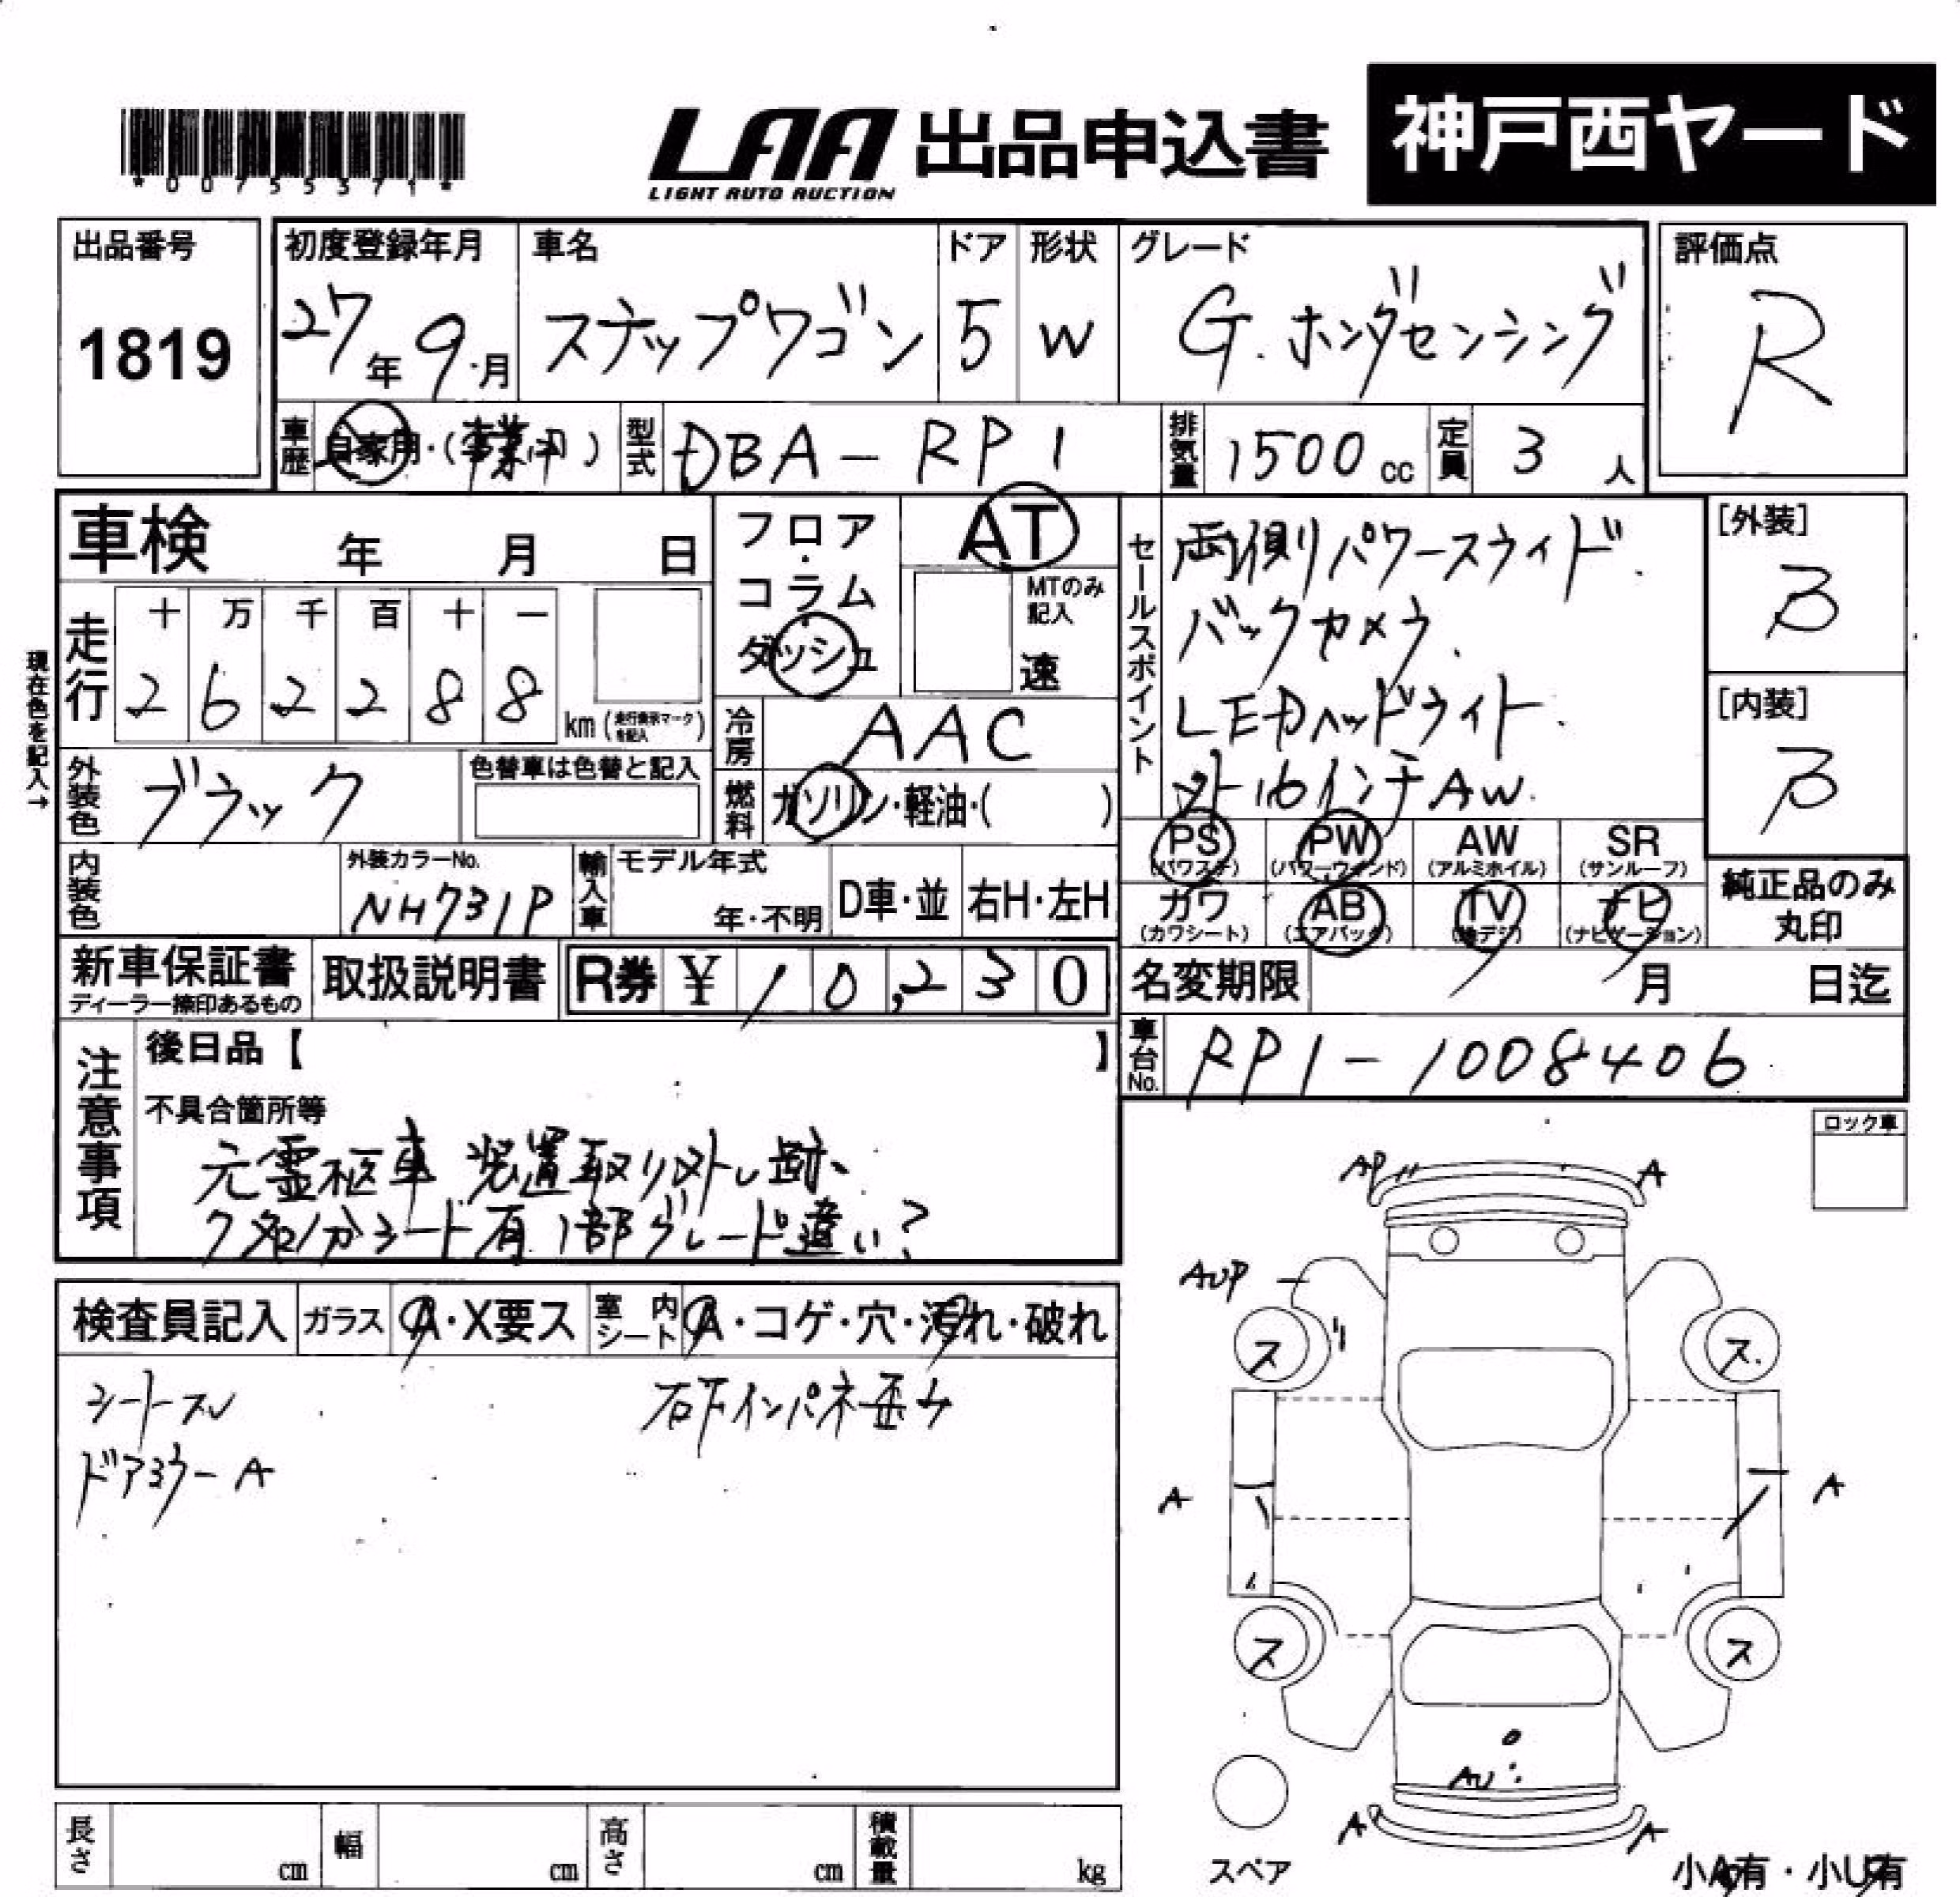 *00755371*
LAA 出品申込書
LIGHT AUTO AUCTION
神戸西ヤード
出品番号
1819
初度登録年月
27年9月
車名
ステップワゴン
ドア
5
形状
W
グレード
G.ホンダセンシング
評価点
R
車歴
自家用・(事業用)
型式
DBA-RP1
排気量
1500cc
定員
3人
車検 年 月 日
フロア・コラム
ダッシュ
AT
MTのみ記入
速
走行
十 万 千 百 十 一
2 6 2 2 8 8
km (走行表示マークを記入)
現在色を記入→
冷房
AAC
セールスポイント
両側パワースライド.
バックカメラ.
LEDヘッドライト.
外16インチAW.
[外装]
B
[内装]
B
外装色
ブラック
色替車は色替と記入
燃料
ガソリン・軽油・( )
内装色
外装カラーNo.
NH731P
輸入車
モデル年式
年・不明
D車・並
右H・左H
PS
(パワステ)
PW
(パワーウィンド)
AW
(アルミホイル)
SR
(サンルーフ)
カワ
(カワシート)
AB
(エアバック)
TV
(地デジ)
ナビ
(ナビゲーション)
純正品のみ
丸印
新車保証書
ディーラー捺印あるもの
取扱説明書
R券 ¥ 10,230
名変期限 月 日迄
車台No.
RP1-1008406
注意事項
後日品【 】
不具合箇所等
元霊柩車 装置取り外し跡、
シート有 1部グレード違い?
ロック車
検査員記入
ガラス
A・X要ス
室内シート
A・コゲ・穴・汚れ・破れ
シートスレ
ドアミラーA
右下インパネ歪み
AP
A
AUP
ス
ス
A
A
ス
ス
AU
AP
A
スペア
小A有・小U有
長さ cm
幅 cm
高さ cm
積載量 kg